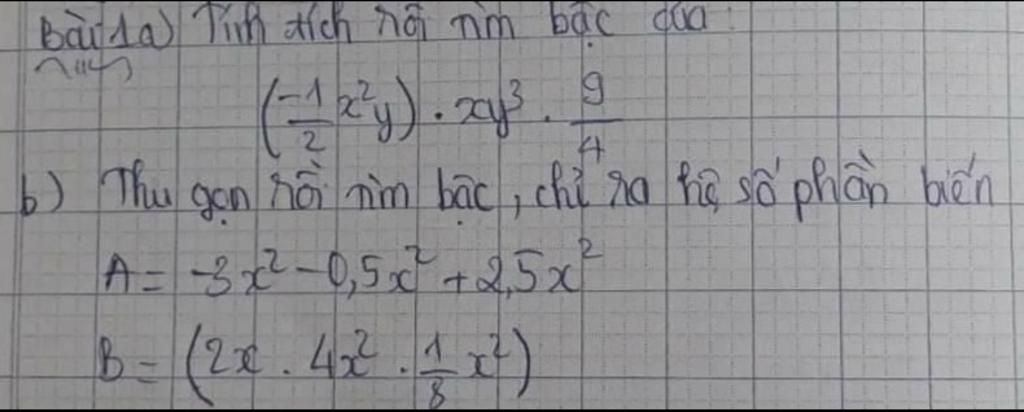 Bài 1a) Tính tích rồi tìm bậc của
(-1/2 x²y) . xy³ . 9/4
b) Thu gọn rồi tìm bậc, chỉ ra hệ số phần biến
A = -3x² - 0,5x² + 2,5x²
B = (2x . 4x² . 1/8 x²)